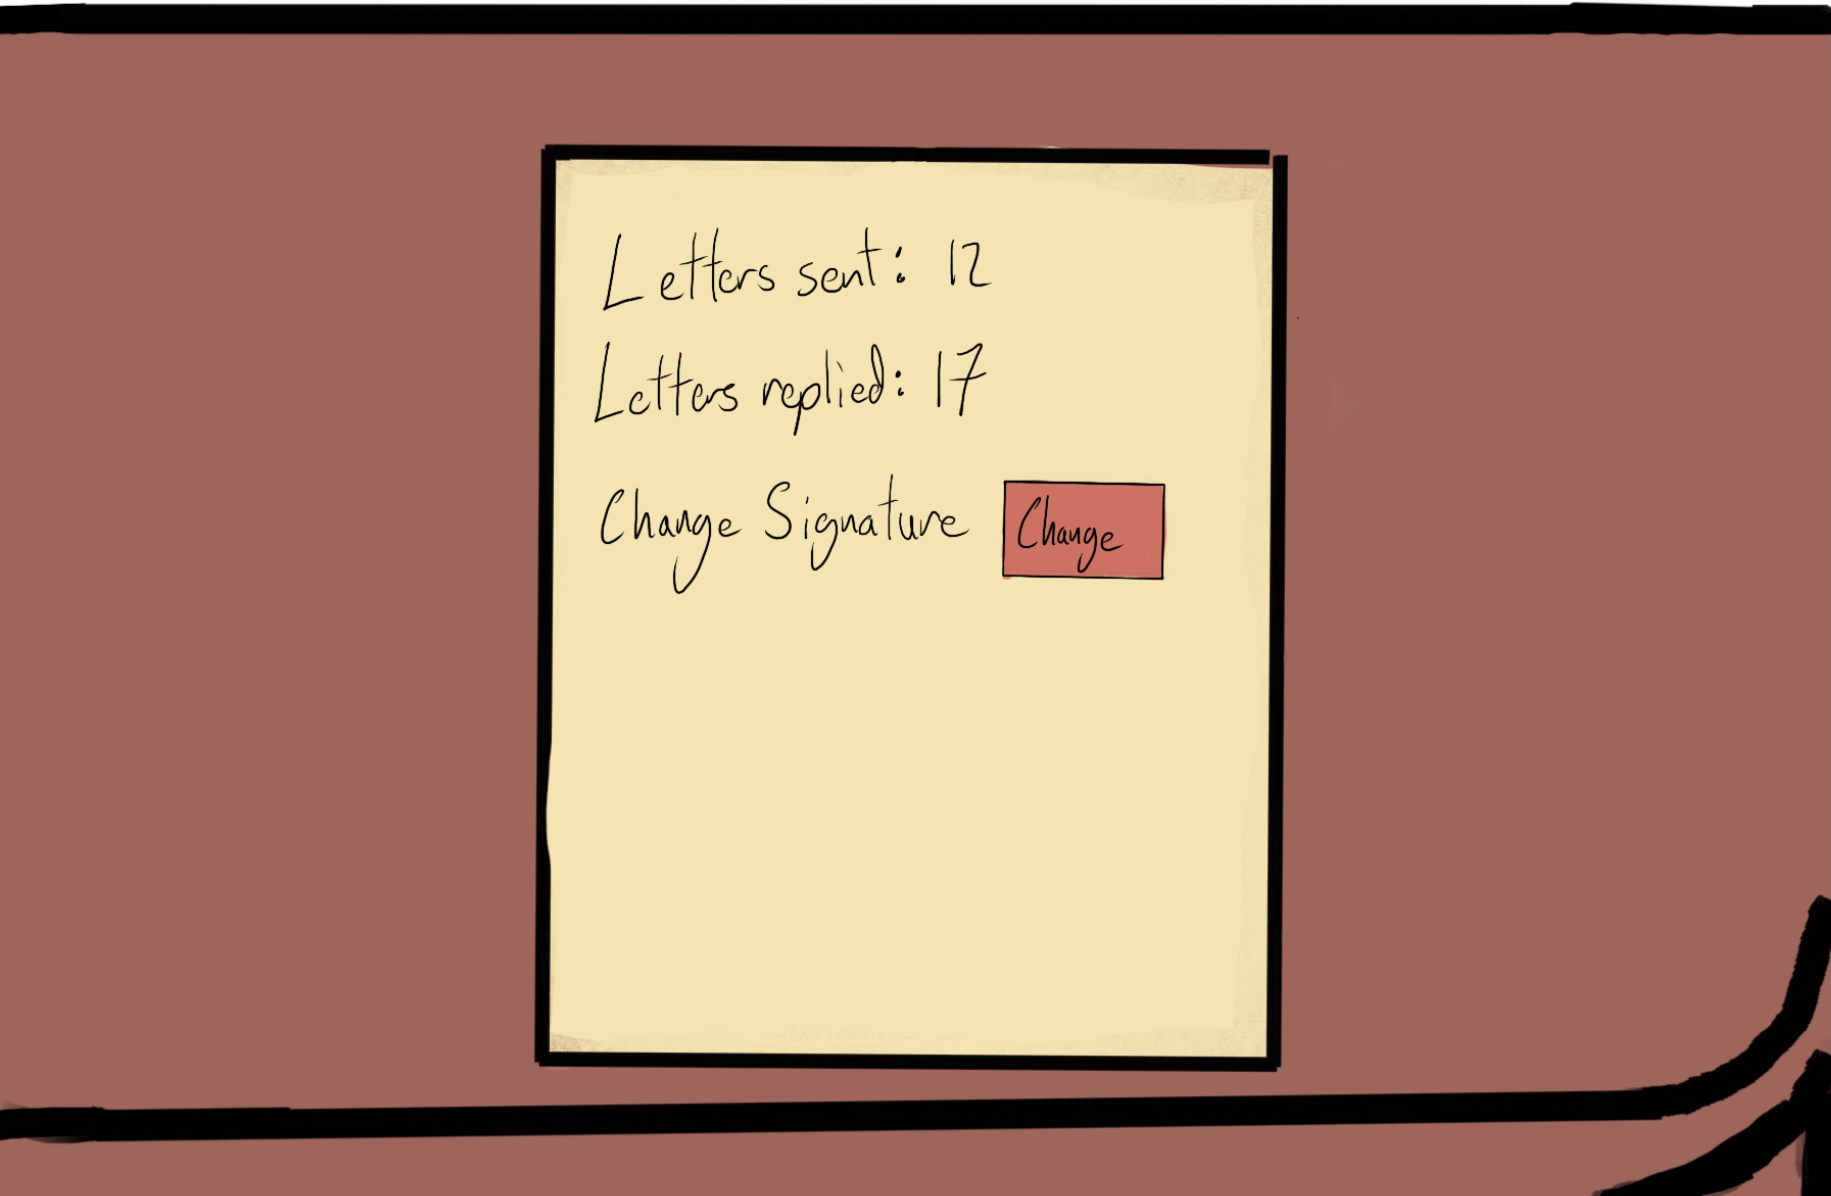 Letters sent: 12
Letters replied: 17
Change Signature Change